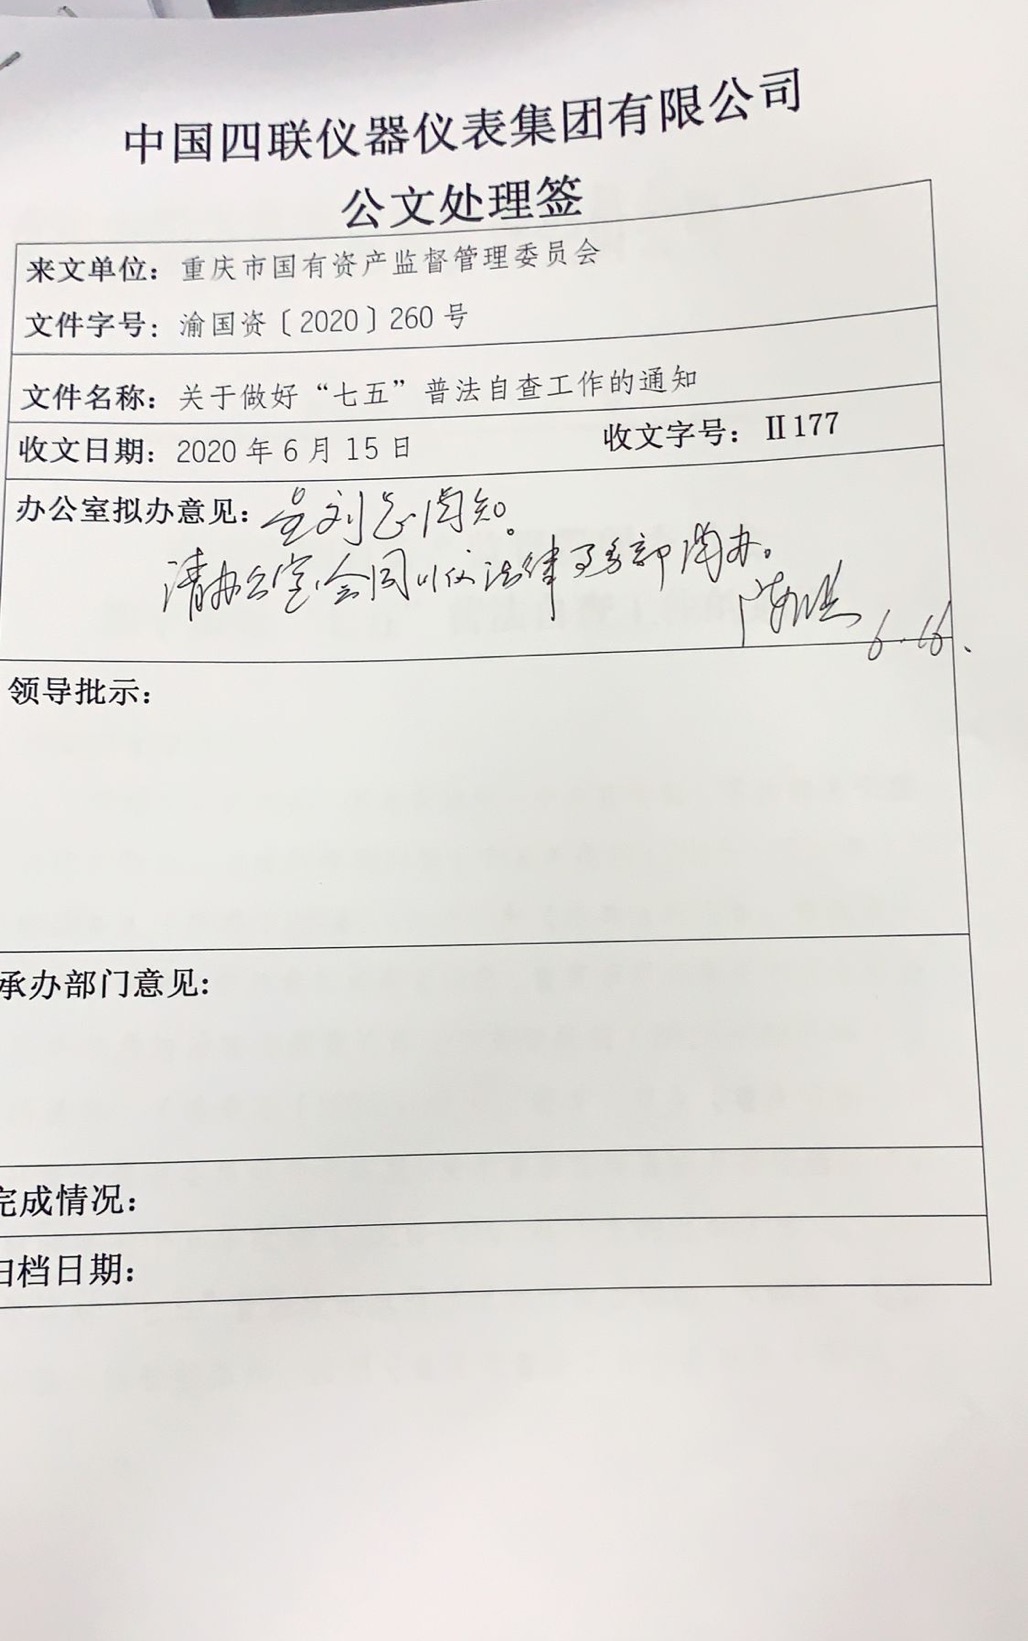 中国四联仪器仪表集团有限公司
公文处理签
来文单位：重庆市国有资产监督管理委员会
文件字号：渝国资〔2020〕260号
文件名称：关于做好“七五”普法自查工作的通知
收文日期：2020年6月15日 收文字号：Ⅱ177
办公室拟办意见：呈刘总阅知。
请办公室会同川仪法律事务部阅办。
6.16.
领导批示：
承办部门意见：
完成情况：
归档日期：